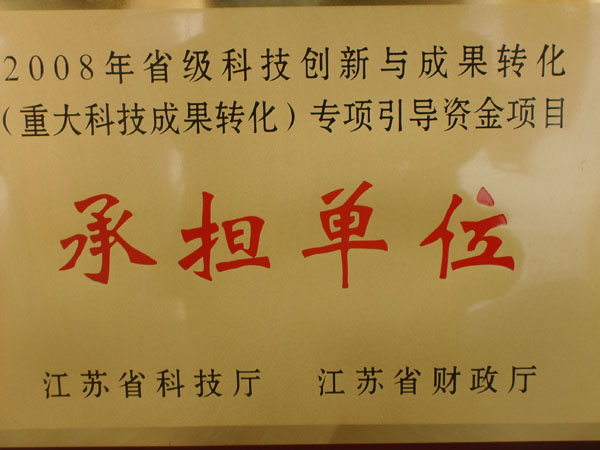 2008年省级科技创新与成果转化
（重大科技成果转化）专项引导资金项目
承担单位
江苏省科技厅 江苏省财政厅